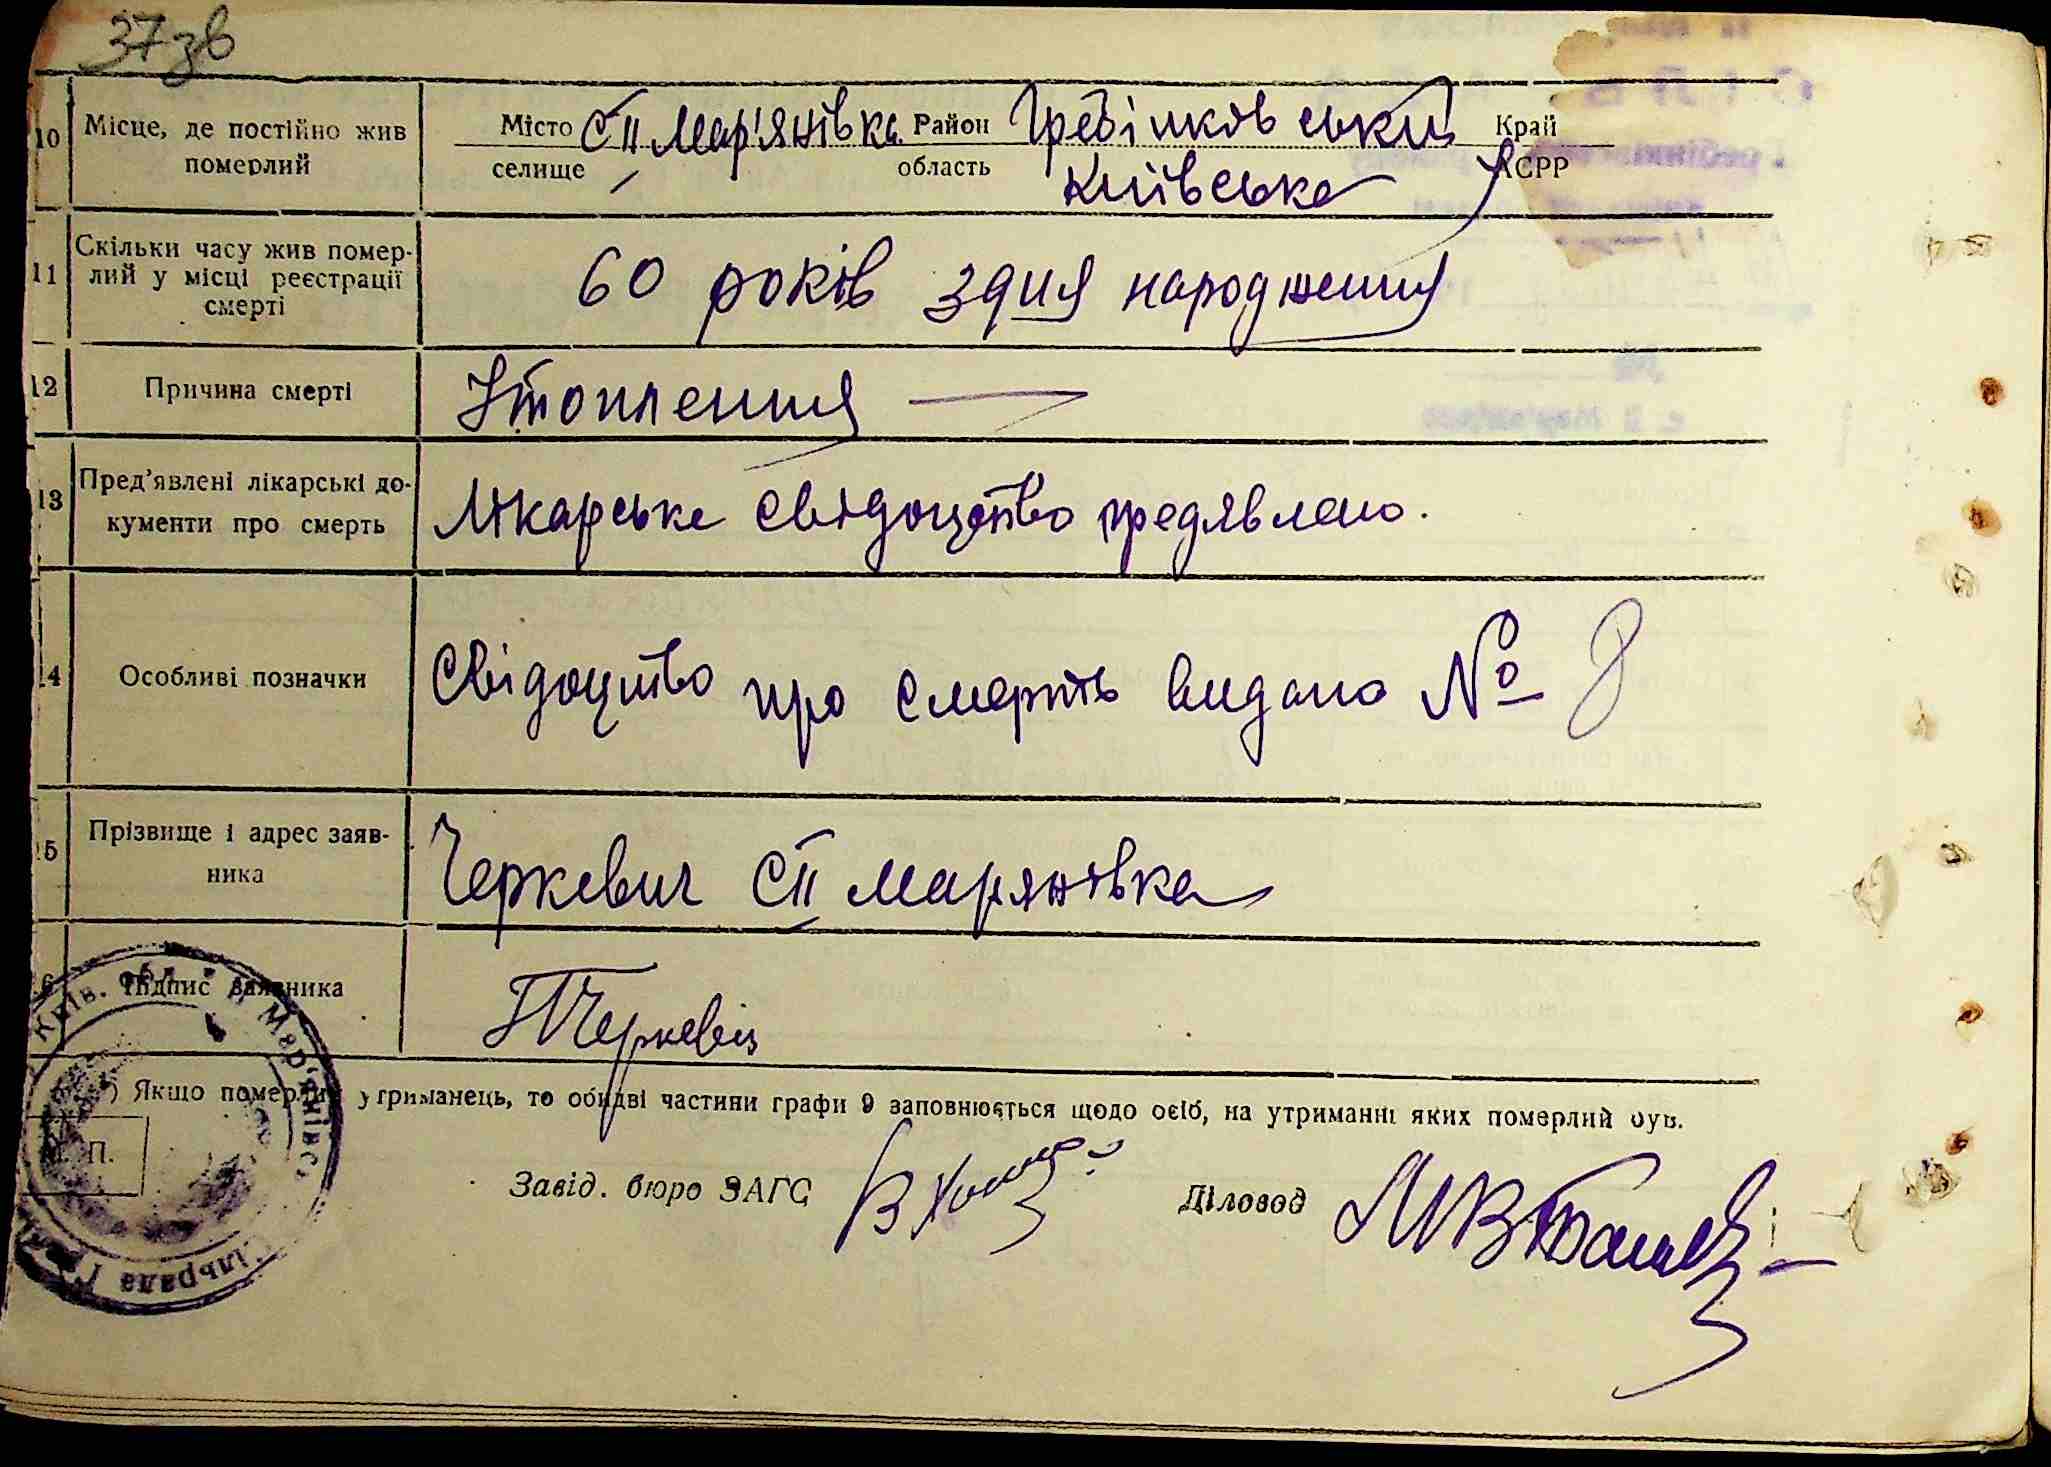 37 зв
10 Місце, де постійно жив Місто С II Мар'янівка Район Гребінковський Край
померлий селище область Київська АСРР
11 Скільки часу жив помер-
лий у місці реєстрації
смерті
60 років з дня народження
12 Причина смерті Утоплення
13 Пред'явлені лікарські до-
кументи про смерть
Лікарське свідоцтво предявлено.
14 Особливі позначки Свідоцтво про смерть видано № 8
15 Прізвище і адрес заяв-
ника
Черкевич С II Марянівка
16 Підпис заявника
Черкевич
*) Якщо померлий утриманець, то обидві частини графи 9 заповнюється щодо осіб, на утриманні яких померлий був.
М. П.
Завід. бюро ЗАГС Діловод
Київ. обл. II Мар'янівс.
Сільрада